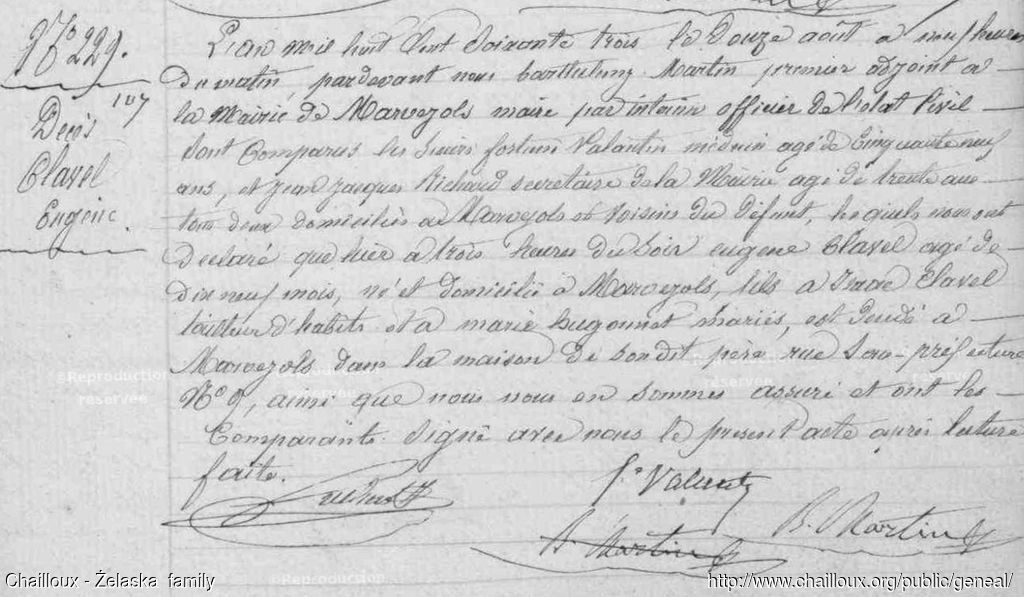 N° 229.
107
Decès
Clavel
Eugène.
L'an mil huit Cent Soixante trois le Douze août a neuf heures
du matin pardevant nous barthelemy Martin premier adjoint a
la Mairie de Marvejols maire par interim officier de l'etat Civil
Sont Comparus les Sieurs fortuné Valantin médecin agé de Cinquante neuf
ans, et Jean Jacques Richard secretaire de la Mairie agé de trente ans
tous deux domiciliés a Marvejols et voisins du défunt, lesquels nous ont
declaré que hier a trois heures du Soir eugene Clavel agé de
Dix neuf mois, né et domicilié à Marvejols, fils a Clavel
tailleur d'habits et a marie hugonnet mariés, est décédé à
Marvejols dans la maison de son dit père rue Sous-préfecture
N° 9, ainsi que nous nous en sommes assuré et ont les
Comparants Signé avec nous le present acte après lecture
faite.
f. Valentin
B. Martin
Martin
©Reproduction
réservée
©Reproduction
réservée
Chailloux - Żelaska family
http://www.chailloux.org/public/geneal/